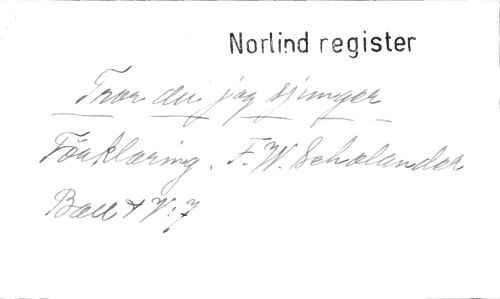 Norlind register
Tror du jag sjunger
Förklaring. F. W. Scholander
V: 7